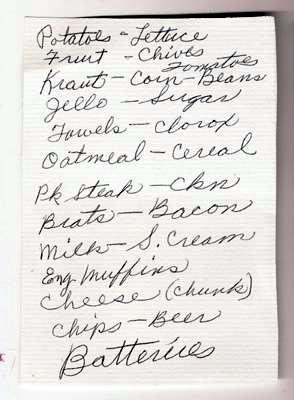 Potatoes - Lettuce
Fruit - Chives
Tomatoes
Kraut - Corn - Beans
Jello - Sugar
Towels - Clorox
Oatmeal - Cereal
Pk Steak - Ckn
Brats - Bacon
Milk - S. Cream
Eng. Muffins
Cheese (Chunk)
Chips - Beer
Batteries